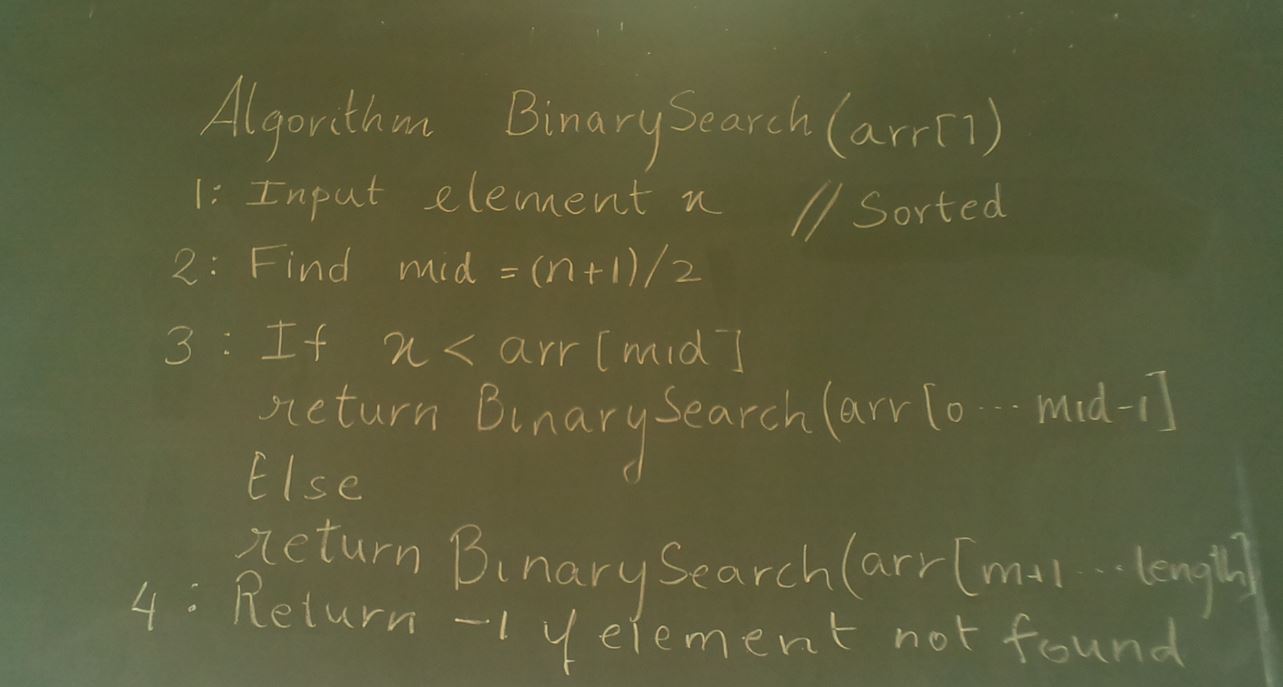 Algorithm BinarySearch(arr[])
1: Input element x // Sorted
2: Find mid = (n+1)/2
3: If x < arr[mid]
return BinarySearch(arr[0 ... mid-1]
Else
return BinarySearch(arr[m+1 ... length]
4: Return -1 if element not found